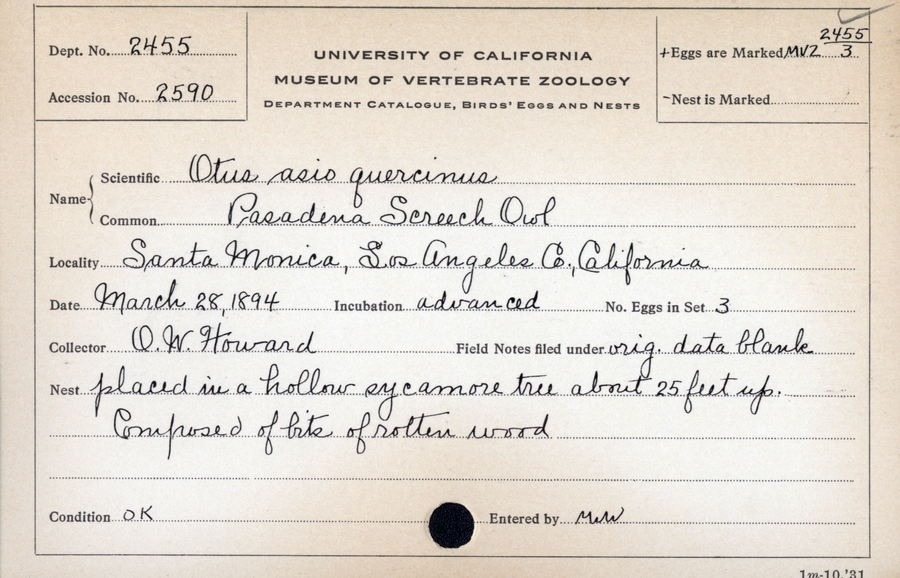 Dept. No. 2455
Accession No. 2590
UNIVERSITY OF CALIFORNIA
MUSEUM OF VERTEBRATE ZOOLOGY
DEPARTMENT CATALOGUE, BIRDS' EGGS AND NESTS
2455
+Eggs are Marked MVZ 3
-Nest is Marked
Name
Scientific Otus asio quercinus
Common Pasadena Screech Owl
Locality Santa Monica, Los Angeles Co., California
Date March 28, 1894 Incubation advanced No. Eggs in Set 3
Collector O.W. Howard Field Notes filed under orig. data blank
Nest placed in a hollow sycamore tree about 25 feet up.
Composed of bits of rotten wood
Condition OK Entered by
1m-10,'31